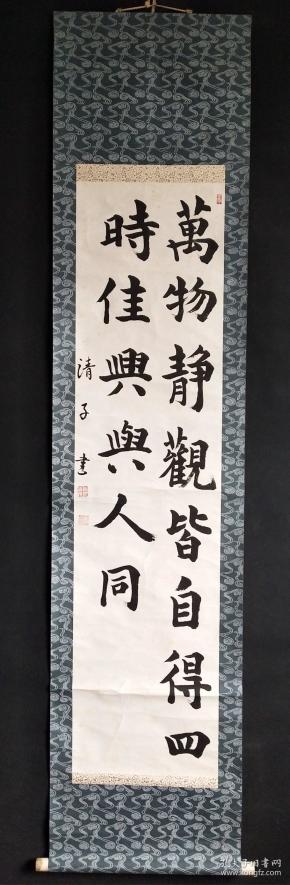 萬物靜觀皆自得四
時佳興與人同
清子書
孔夫子旧书网